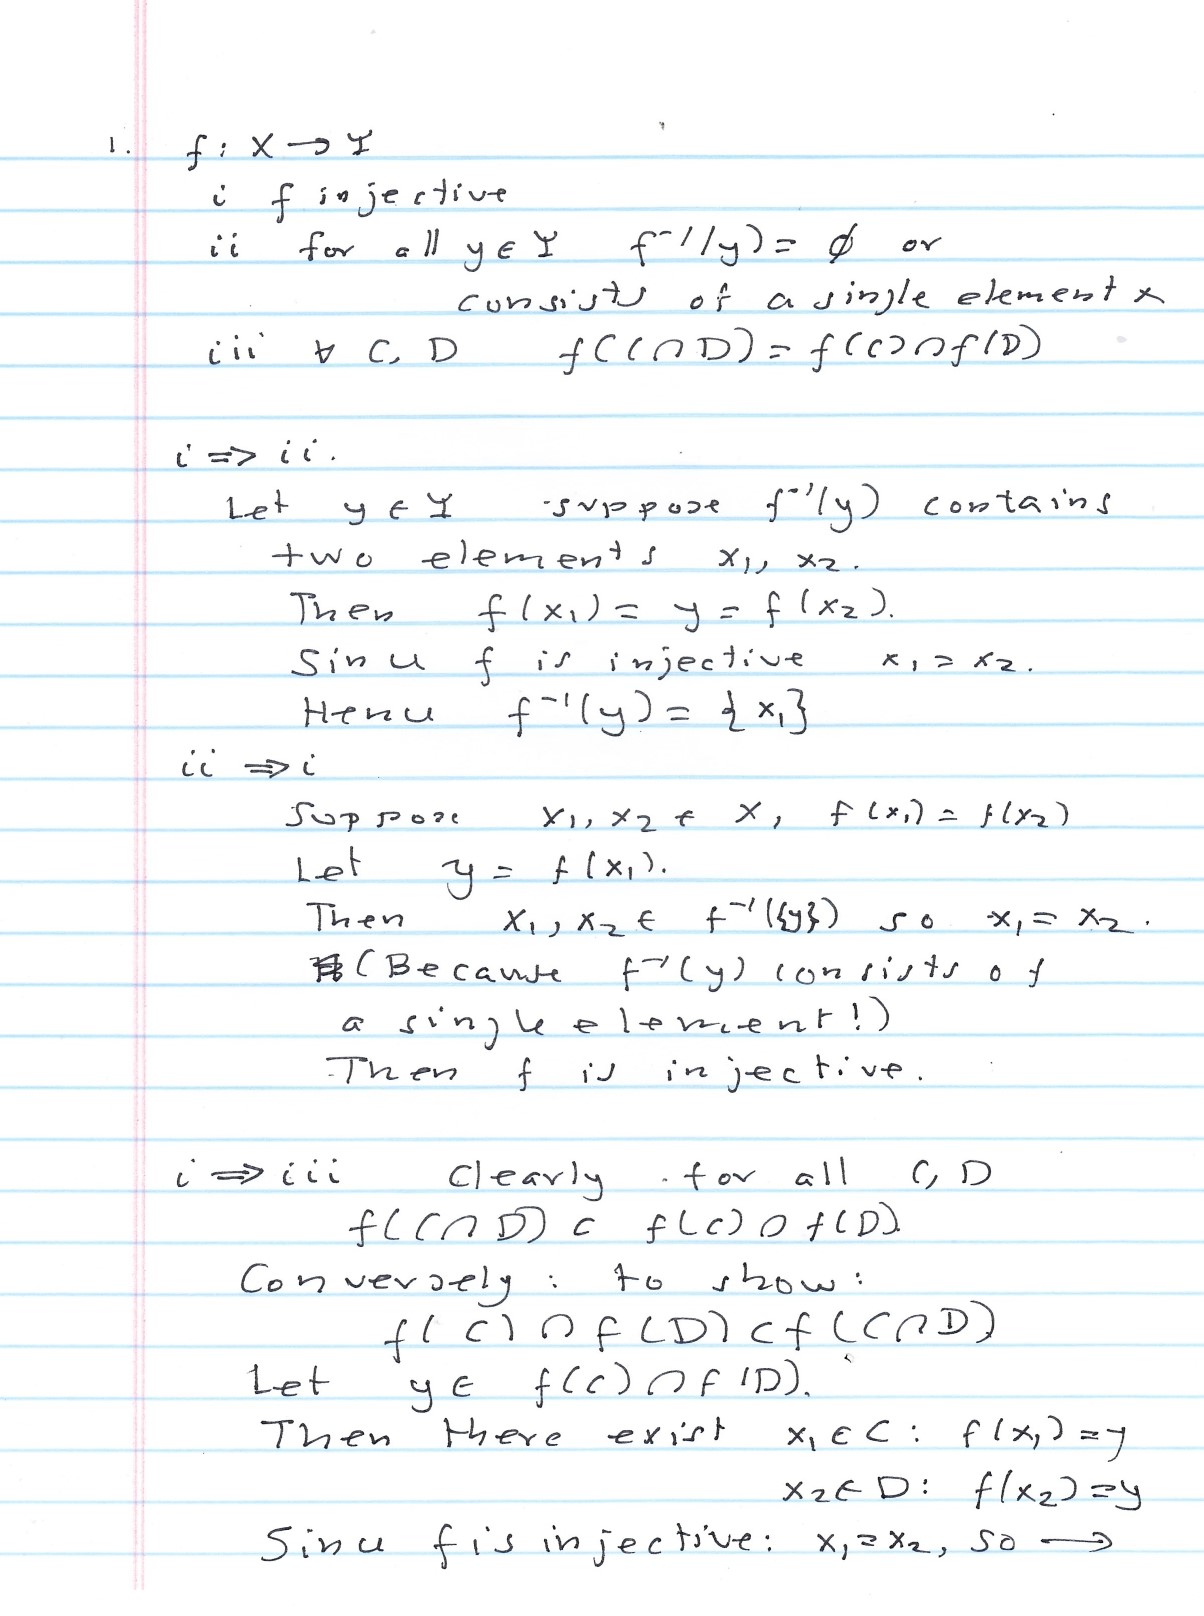 1. f: X → Y
i f injective
ii for all y ∈ Y f⁻¹(y) = ∅ or
consists of a single element x
iii ∀ C, D f(C∩D) = f(C)∩f(D)
i ⇒ ii.
Let y ∈ Y suppose f⁻¹(y) contains
two elements x₁, x₂.
Then f(x₁) = y = f(x₂).
Since f is injective x₁ = x₂.
Hence f⁻¹(y) = {x₁}
ii ⇒ i
Suppose x₁, x₂ ∈ X, f(x₁) = f(x₂)
Let y = f(x₁).
Then x₁, x₂ ∈ f⁻¹({y}) so x₁ = x₂.
(Because f⁻¹(y) consists of
a single element!)
Then f is injective.
i ⇒ iii Clearly for all C, D
f(C∩D) ⊂ f(C)∩f(D)
Conversely: to show:
f(C)∩f(D) ⊂ f(C∩D)
Let y ∈ f(C)∩f(D).
Then there exist x₁ ∈ C: f(x₁) = y
x₂ ∈ D: f(x₂) = y
Since f is injective: x₁ = x₂, so →